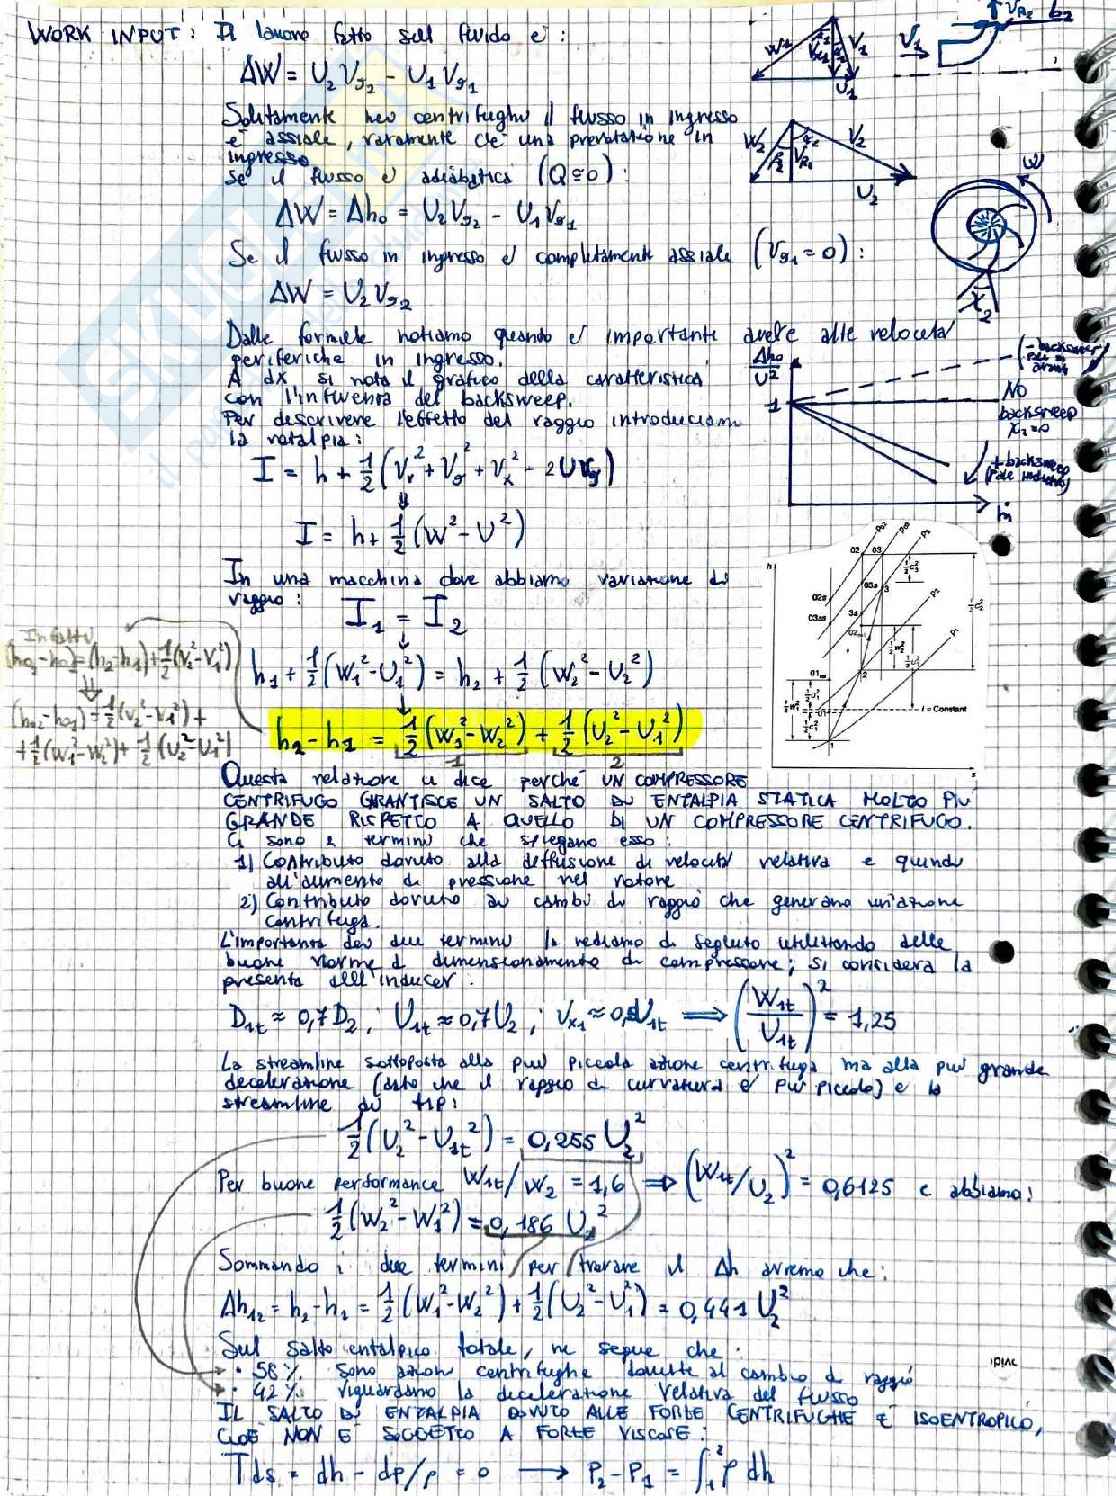 WORK INPUT: Il lavoro fatto sul fluido è:
ΔW = U₂Vϑ₂ - U₁Vϑ₁
Solitamente nei centrifughi il flusso in ingresso
è assiale, raramente c'è una prerotazione in
ingresso
Se il flusso è adiabatico (Q≅0):
ΔW = Δh₀ = U₂Vϑ₂ - U₁Vϑ₁
Se il flusso in ingresso è completamente assiale (Vϑ₁ = 0):
ΔW = U₂Vϑ₂
Dalle formule notiamo quando è importante avere alte velocità
periferiche in ingresso.
A dx si nota il grafico della caratteristica
con l'influenza del backsweep.
Per descrivere l'effetto del raggio introduciamo
la rotalpia:
I = h + 1/2 (Vr² + Vϑ² + Vx² - 2UVϑ)
⇓
I = h + 1/2 (W² - U²)
In una macchina dove abbiamo variazione di
raggio: I₁ = I₂
↓
h₁ + 1/2 (W₁² - U₁²) = h₂ + 1/2 (W₂² - U₂²)
↓
h₂ - h₁ = 1/2 (W₁² - W₂²) + 1/2 (U₂² - U₁²)
1 2
Infatti
(h₀₂-h₀₁) = (h₂-h₁) + 1/2 (V₂²-V₁²)
⇓
(h₀₂-h₀₁) = 1/2 (V₂²-V₁²) +
+ 1/2 (W₁²-W₂²) + 1/2 (U₂²-U₁²)
Questa relazione ci dice perché UN COMPRESSORE
CENTRIFUGO GRANTISCE UN SALTO DI ENTALPIA STATICA MOLTO PIÙ
GRANDE RISPETTO A QUELLO DI UN COMPRESSORE CENTRIFUGO.
Ci sono 2 termini che spiegano esso:
1) Contributo dovuto alla diffusione di velocità relativa e quindi
all'aumento di pressione nel rotore
2) Contributo dovuto ai cambi di raggio che generano un'azione
centrifuga.
L'importanza dei due termini la vediamo di seguito utilizzando delle
buone norme di dimensionamento di compressore; si considera la
presenza dell'inducer:
D₁t ≈ 0,7D₂ ; U₁t ≈ 0,7U₂ ; Vx₁ ≈ 0,5U₁t ⟹ (W₁t/U₁t)² = 1,25
La streamline sottoposta alla più piccola azione centrifuga ma alla più grande
decelerazione (dato che il raggio di curvatura è più piccolo) è la
streamline di tip:
1/2 (U₂² - U₁t²) = 0,255 U₂²
Per buone performance W₁t/W₂ = 1,6 ⟹ (W₁t/U₂)² = 0,6125 e abbiamo:
1/2 (W₂² - W₁²) = 0,186 U₂²
Sommando i due termini per trovare il Δh avremo che:
Δh₁₂ = h₂ - h₁ = 1/2 (W₁² - W₂²) + 1/2 (U₂² - U₁²) = 0,441 U₂²
Sul salto entalpico totale, ne segue che:
• 58% sono azioni centrifughe dovute al cambio di raggio
• 42% riguardano la decelerazione relativa del flusso
IL SALTO DI ENTALPIA DOVUTO ALLE FORZE CENTRIFUGHE È ISOENTROPICO,
CIOÈ NON È SOGGETTO A FORZE VISCOSE:
Tds = dh - dp/ρ = 0 ⟶ P₂ - P₁ = ∫₁² ρ dh
W₁ V₁ U₁
V₁ V_R₂ b₂
W₂ V₂ U₂
ω
χ₂
Δh₀/U²
1
- backsweep
NO
backsweep
χ₂=0
+ backsweep
ṁ
h
02 03
3
02s
03ss
2
I = Constant
1
s